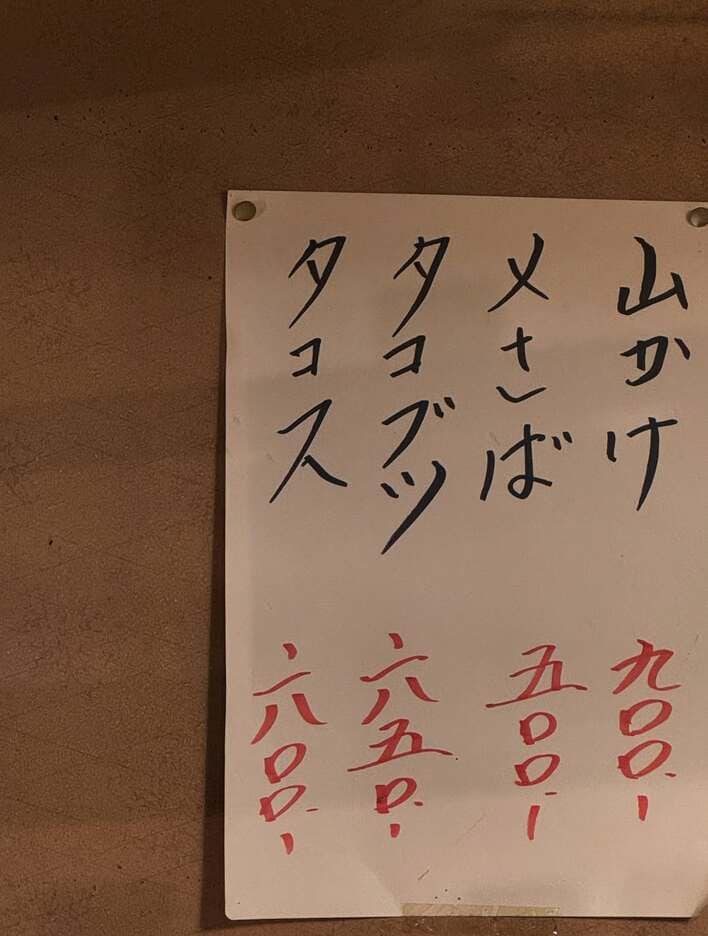 山かけ 九〇〇.-
〆さば 五〇〇.-
タコブツ 六五〇.-
タコス 六〇〇.-